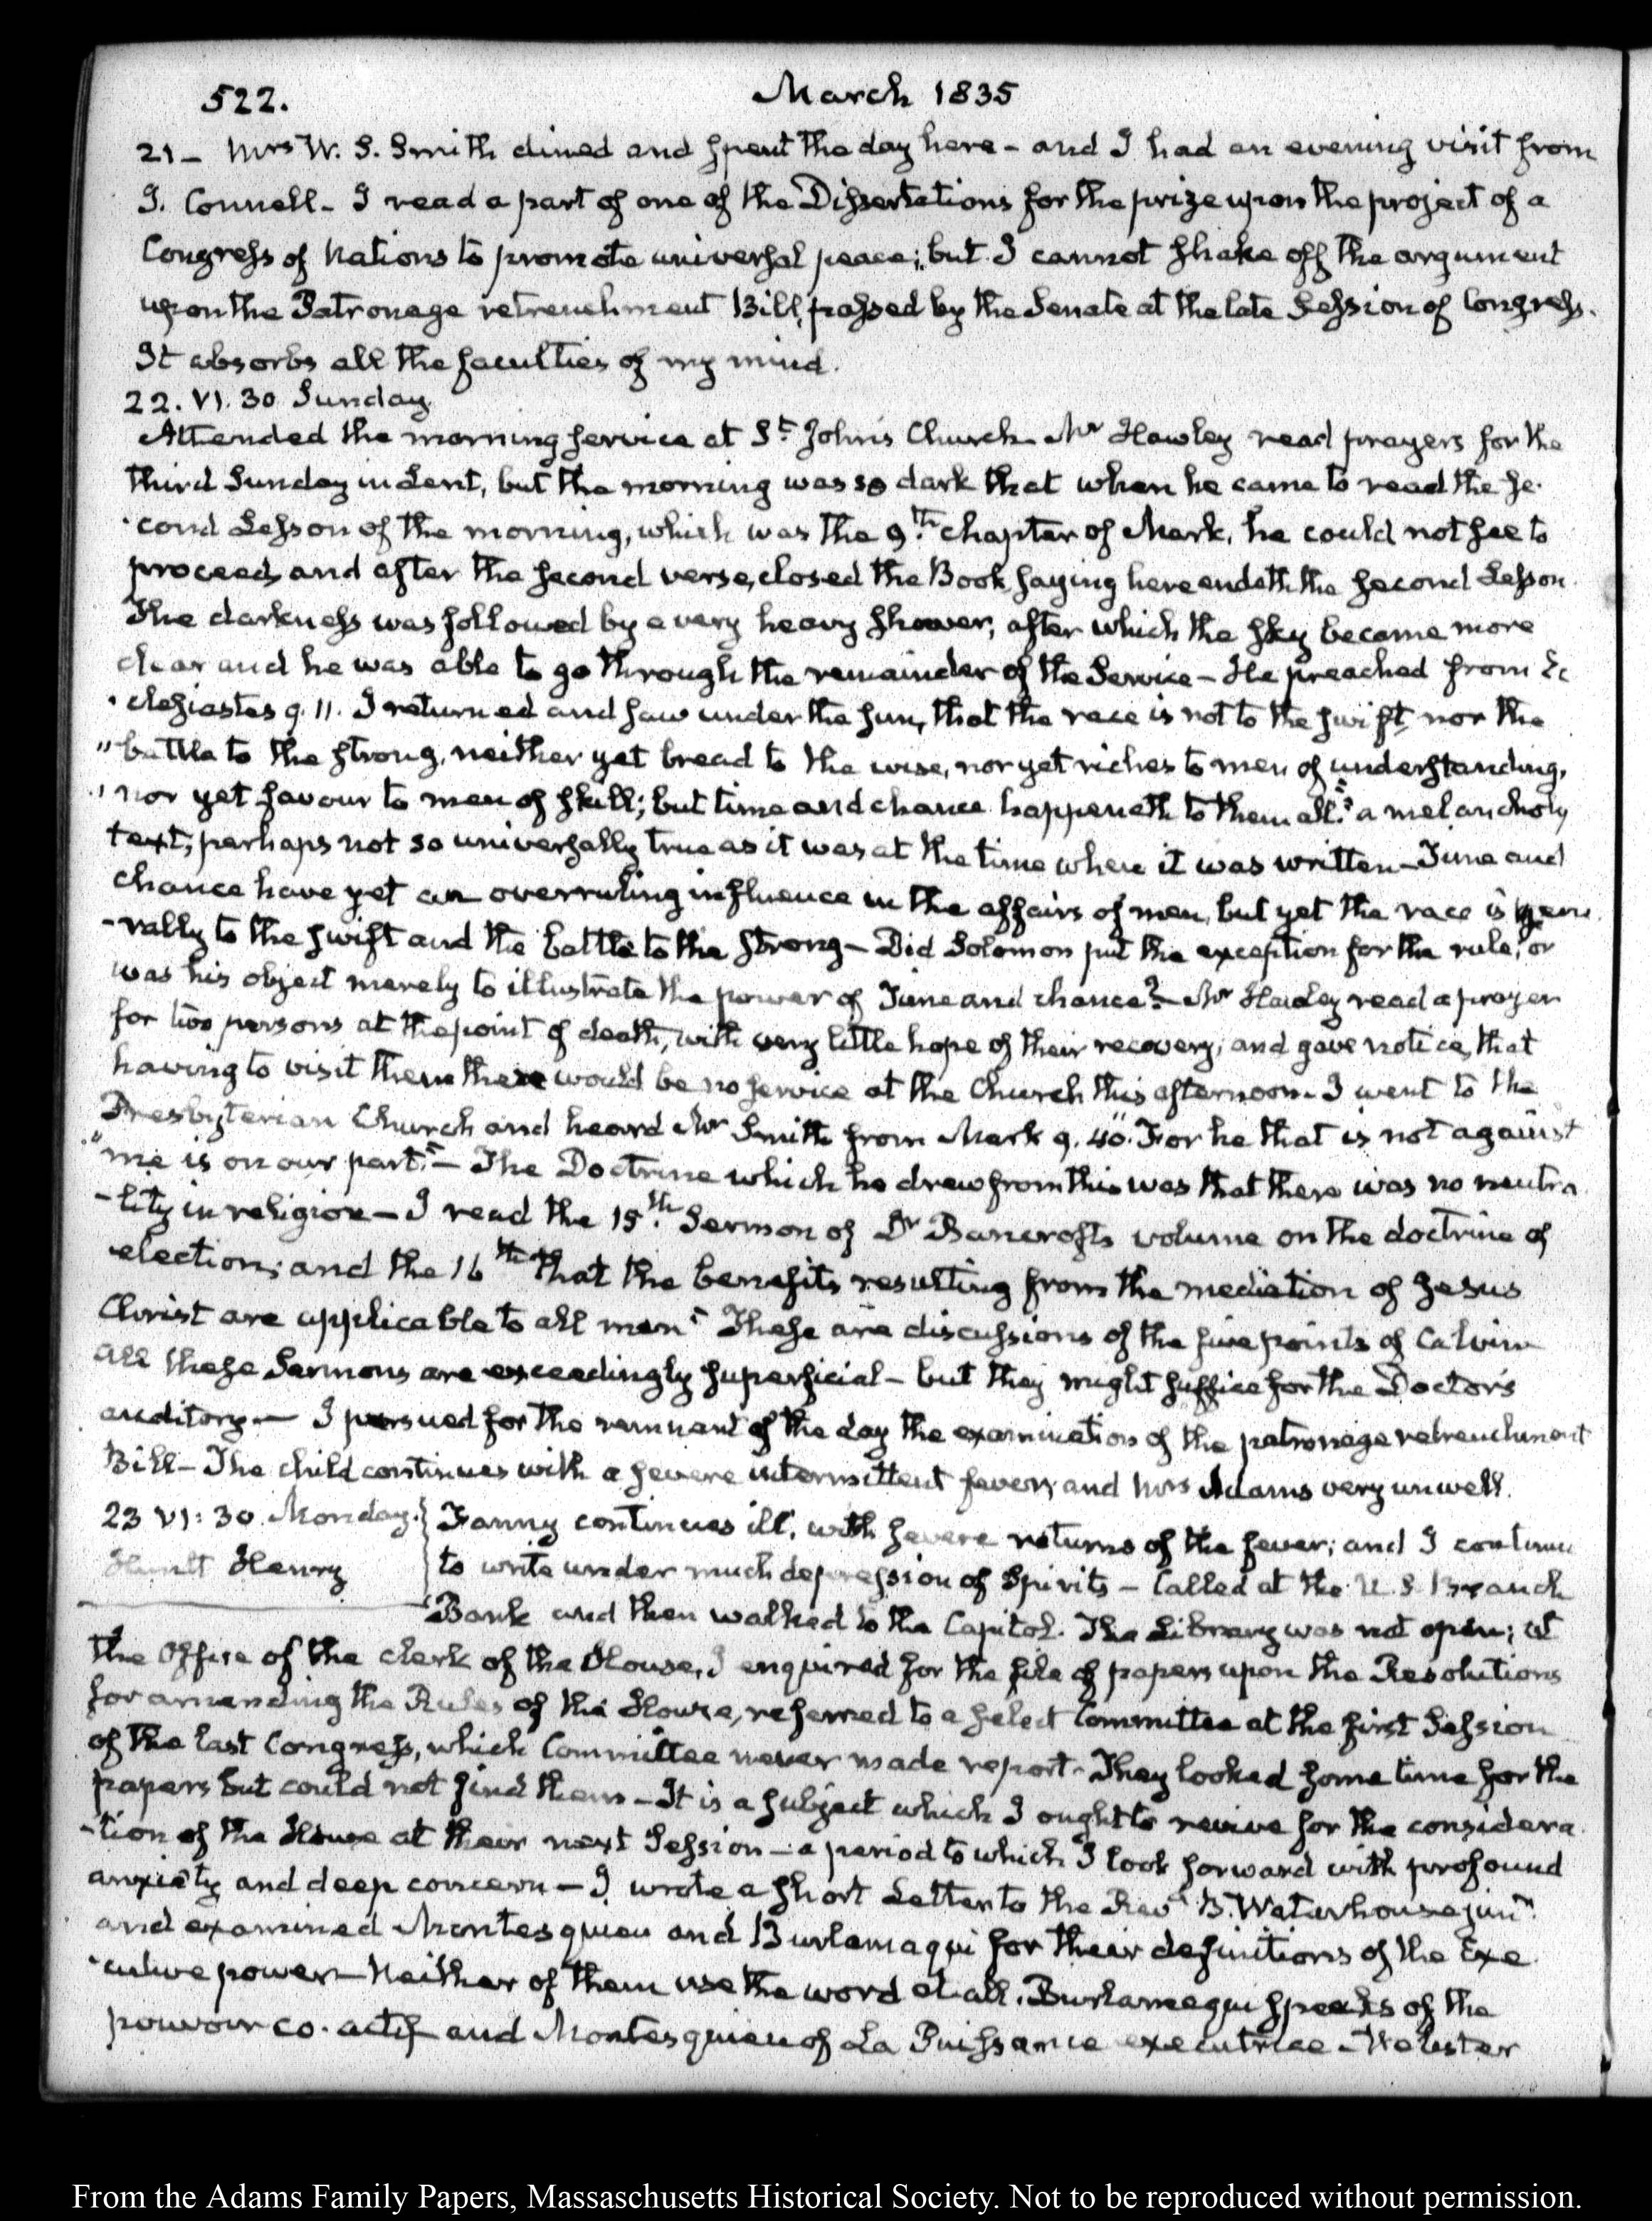 522. March 1835
21 – Mrs W. S. Smith dined and spent the day here – and I had an evening visit from
J. Connell – I read a part of one of the Dissertations for the prize upon the project of a
Congress of Nations to promote universal peace; but I cannot shake off the argument
upon the Patronage retrenchment Bill, passed by the Senate at the late Session of Congress.
It absorbs all the faculties of my mind.
22. VI. 30 Sunday.
Attended the morning service at St. John's Church. Mr Hawley read prayers for the
third Sunday in Lent, but the morning was so dark that when he came to read the se-
-cond Lesson of the morning, which was the 9th. chapter of Mark, he could not see to
proceed, and after the second verse, closed the Book, saying here endeth the second Lesson.
The darkness was followed by a very heavy shower, after which the sky became more
clear and he was able to go through the remainder of the Service – He preached from Ec
-clesiastes 9. 11. I returned and saw under the sun, that the race is not to the swift nor the
"battle to the strong, neither yet bread to the wise, nor yet riches to men of understanding,
"nor yet favour to men of skill; but time and chance happeneth to them all": a melancholy
text; perhaps not so universally true as it was at the time when it was written – Time and
chance have yet an overruling influence in the affairs of men, but yet the race is gene
-rally to the swift and the battle to the strong – Did Solomon put the exception for the rule, or
was his object merely to illustrate the power of Time and chance? – Mr Hawley read a prayer
for two persons at the point of death, with very little hope of their recovery; and gave notice, that
having to visit them there would be no service at the Church this afternoon – I went to the
Presbyterian Church and heard Mr Smith from Mark 9. 40. "For he that is not against
"me is on our part." – The Doctrine which he drew from this was that there was no neutra
-lity in religion – I read the 15th. Sermon of Dr Bancroft's volume on the doctrine of
election; and the 16th that the benefits resulting from the mediation of Jesus
Christ are applicable to all men" These are discussions of the five points of Calvin
All these Sermons are exceedingly superficial – but they might suffice for the Doctor's
auditory – I pursued for the remnant of the day the examination of the patronage retrenchment
Bill – The child continues with a severe intermittent fever; and Mrs Adams very unwell.
23 VI: 30. Monday. Fanny continues ill, with severe returns of the fever; and I continue
Hunt Henry to write under much depression of Spirits – Called at the U. S. Branch
Bank and then walked to the Capitol. The Library was not open; at
the Office of the clerk of the House, I enquired for the file of papers upon the Resolutions
for amending the Rules of the House, referred to a select Committee at the first Session
of the last Congress, which Committee never made report – They looked some time for the
papers but could not find them – It is a subject which I ought to revive for the considera
-tion of the House at their next Session – a period to which I look forward with profound
anxiety and deep concern – I wrote a short Letter to the Revd B. Waterhouse junr.
and examined Montesquieu and Burlamaqui for their definitions of the Exe
-cutive power – Neither of them use the word at all. Burlamaqui speaks of the
pouvoir co-actif and Montesquieu of La Puissance executrice – Webster
From the Adams Family Papers, Massaschusetts Historical Society. Not to be reproduced without permission.